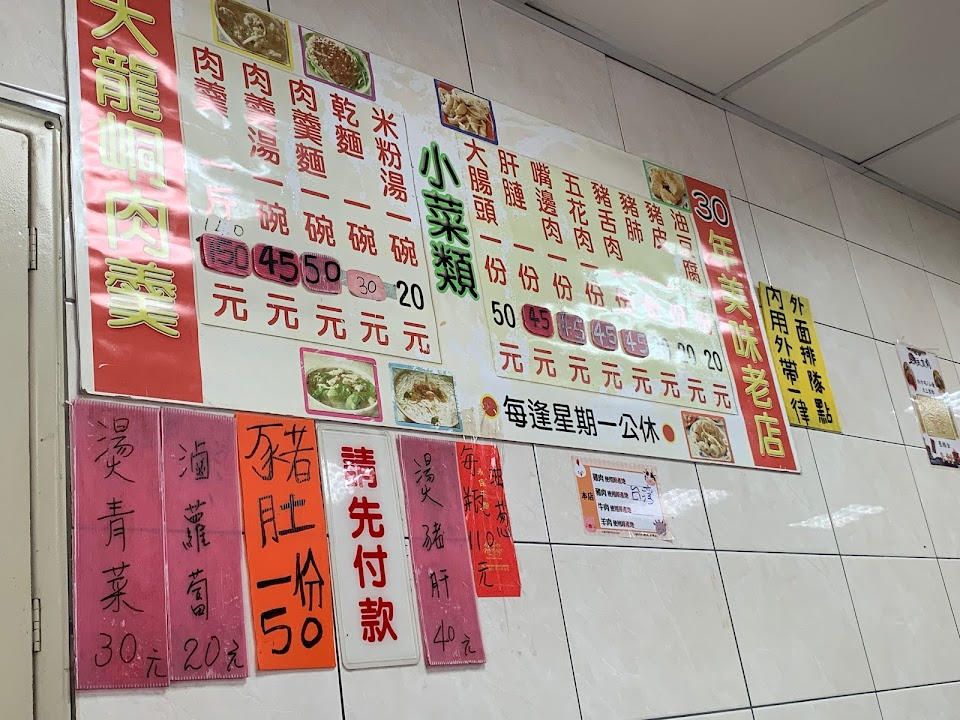 大龍峒肉羹
肉羹一斤150元
110
肉羹湯一碗45元
肉羹麵一碗50元
乾麵一碗30元
米粉湯一碗20元
小菜類
大腸頭一份50元
肝連一份45元
嘴邊肉一份45元
五花肉一份45元
豬舌肉一份45元
豬肺
元
豬皮
20元
油豆腐
20元
30年美味老店
每逢星期一公休
外面排隊點
內用外帶一律
燙青菜30元
滷蘿蔔20元
豬肚一份50
請先付款
燙豬肝40元
油蔥
每瓶110元
本店
豬肉
豬肉
牛肉
羊肉
台灣